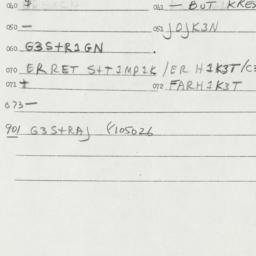 040 $ 041 — BUT KRES
050 — 051 JOJK3N
060 G3S+R1GN .
070 ERRET S++1MP1K/ER H1K3T/C3
071 + 072 FARH1K3T
073 —
901 G3S+RAJ Y105026